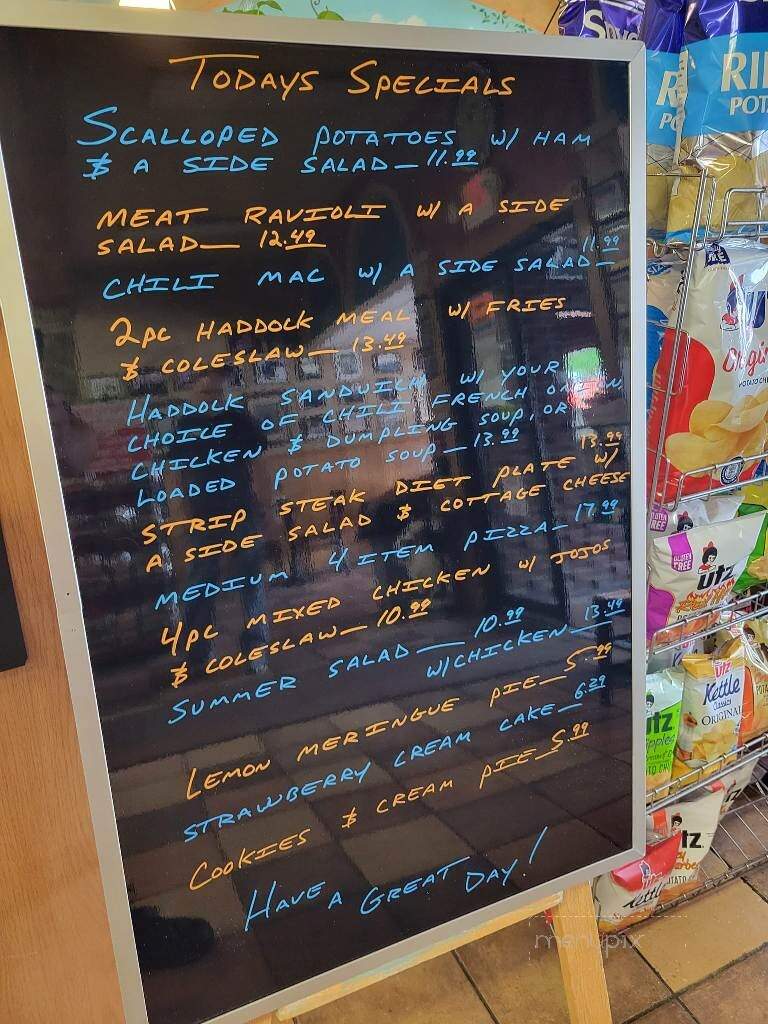 TODAYS SPECIALS
SCALLOPED POTATOES W/ HAM
& A SIDE SALAD— 11.99
MEAT RAVIOLI W/ A SIDE
SALAD— 12.49
CHILI MAC W/ A SIDE SALAD— 11.99
2PC HADDOCK MEAL W/ FRIES
& COLESLAW— 13.49
HADDOCK SANDWICH W/ YOUR
CHOICE OF CHILI FRENCH ONION,
CHICKEN & DUMPLING SOUP, OR
LOADED POTATO SOUP— 13.99
STRIP STEAK DIET PLATE W/ 13.99
A SIDE SALAD & COTTAGE CHEESE
MEDIUM 4 ITEM PIZZA— 17.99
4PC MIXED CHICKEN W/ JOJOS
& COLESLAW— 10.99
SUMMER SALAD— 10.99
W/CHICKEN— 13.49
LEMON MERINGUE PIE— 5.99
STRAWBERRY CREAM CAKE— 6.29
COOKIES & CREAM PIE— 5.99
HAVE A GREAT DAY!
RI
POT
GLUTEN FREE
utz
utz
Kettle
Classics
ORIGINAL
tz.
menupix